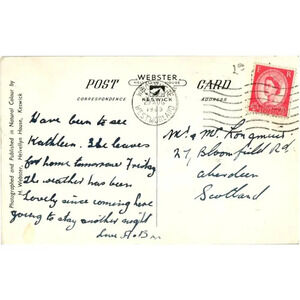 WEBSTER
HELVELLYN HOUSE
KESWICK
POST CARD
CORRESPONDENCE
ADDRESS
Photographed and Published in Natural Colour by
H. Webster, Helvellyn House, Keswick
Have been to see
Kathleen. She leaves
for home tomorrow Friday
The weather has been
lovely since coming here
going to stay another night
Love
Mr & Mrs Longmuir
27, Bloomfield Rd.
Aberdeen
Scotland
WESTMORLAND